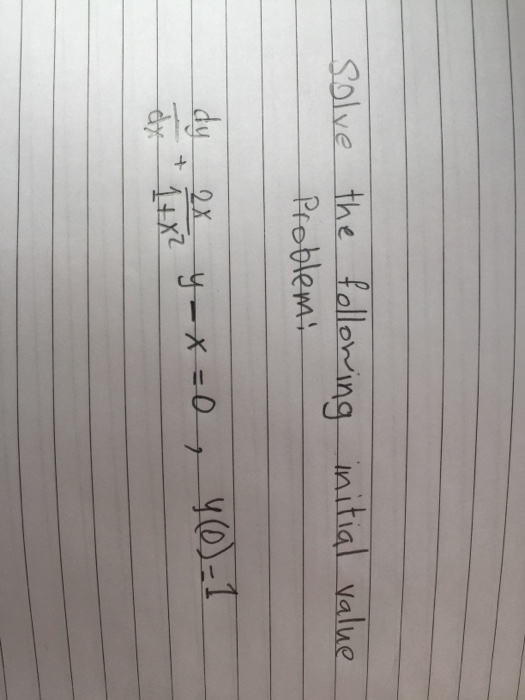 Solve the following initial value
Problem:
dy/dx + 2x/1+x² y - x = 0 , y(0)=1